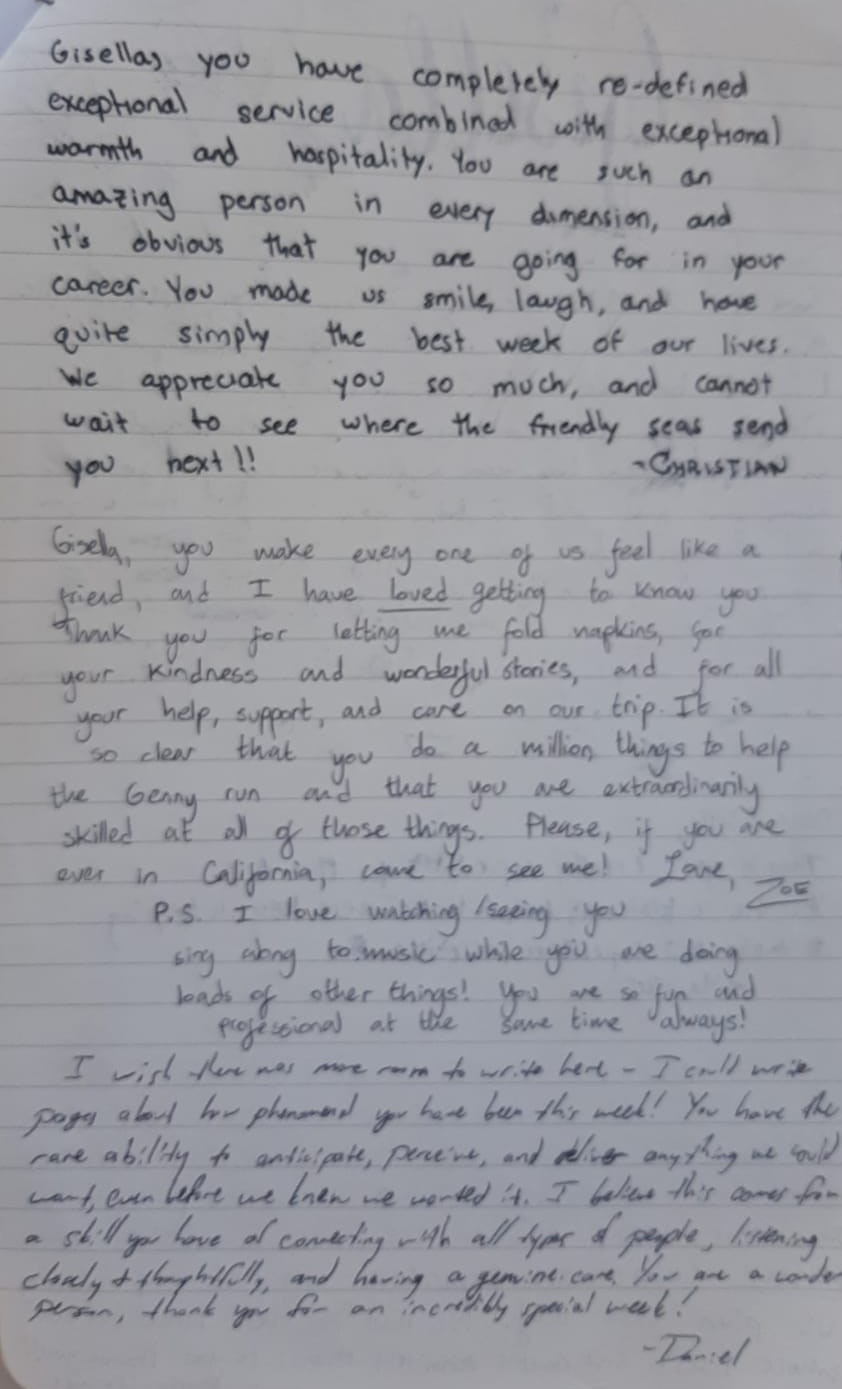 Gisella, you have completely re-defined
exceptional service combined with exceptional
warmth and hospitality. You are such an
amazing person in every dimension, and
it's obvious that you are going for in your
career. You made us smile, laugh, and have
quite simply the best week of our lives.
We appreciate you so much, and cannot
wait to see where the friendly seas send
you next!! -CHRISTIAN
Gisella, you make every one of us feel like a
friend, and I have loved getting to know you
Thank you for letting me fold napkins, for
your kindness and wonderful stories, and for all
your help, support, and care on our trip. It is
so clear that you do a million things to help
the Genny run and that you are extraordinarily
skilled at all of those things. Please, if you are
ever in California, come to see me! Love, ZOE
P.S. I love watching/seeing you
sing along to music while you are doing
loads of other things! You are so fun and
professional at the same time always!
I wish there was more room to write here - I could write
pages about how phenomenal you have been this week! You have the
rare ability to anticipate, perceive, and deliver anything we could
want, even before we knew we wanted it. I believe this comes from
a skill you have of connecting with all types of people, listening
closely & thoughtfully, and having a genuine care. You are a wonder
person, thank you for an incredibly special week!
-Daniel